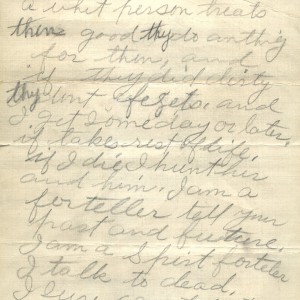 a whit person treats
them good thy do anything
for them, and
if thy did dirty
thy dont fegets, and
I get someday or later.
if takes rest of life.
if I die I hunt his
and him. I am a
forteller tell your
past and future.
I am a Spirt forteler
I talk to dead.